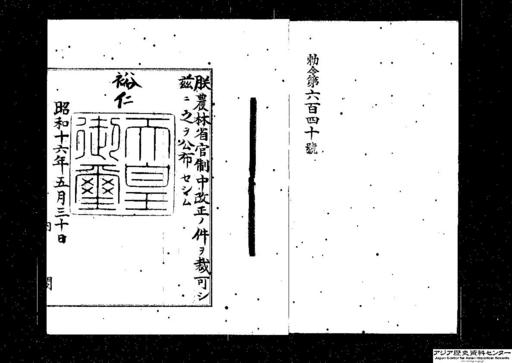 勅令第六百四十號
朕農林省官制中改正ノ件ヲ裁可シ
茲ニ之ヲ公布セシム
裕仁
天皇御璽
昭和十六年五月三十日
内閣
アジア歴史資料センター
Japan Center for Asian Historical Records